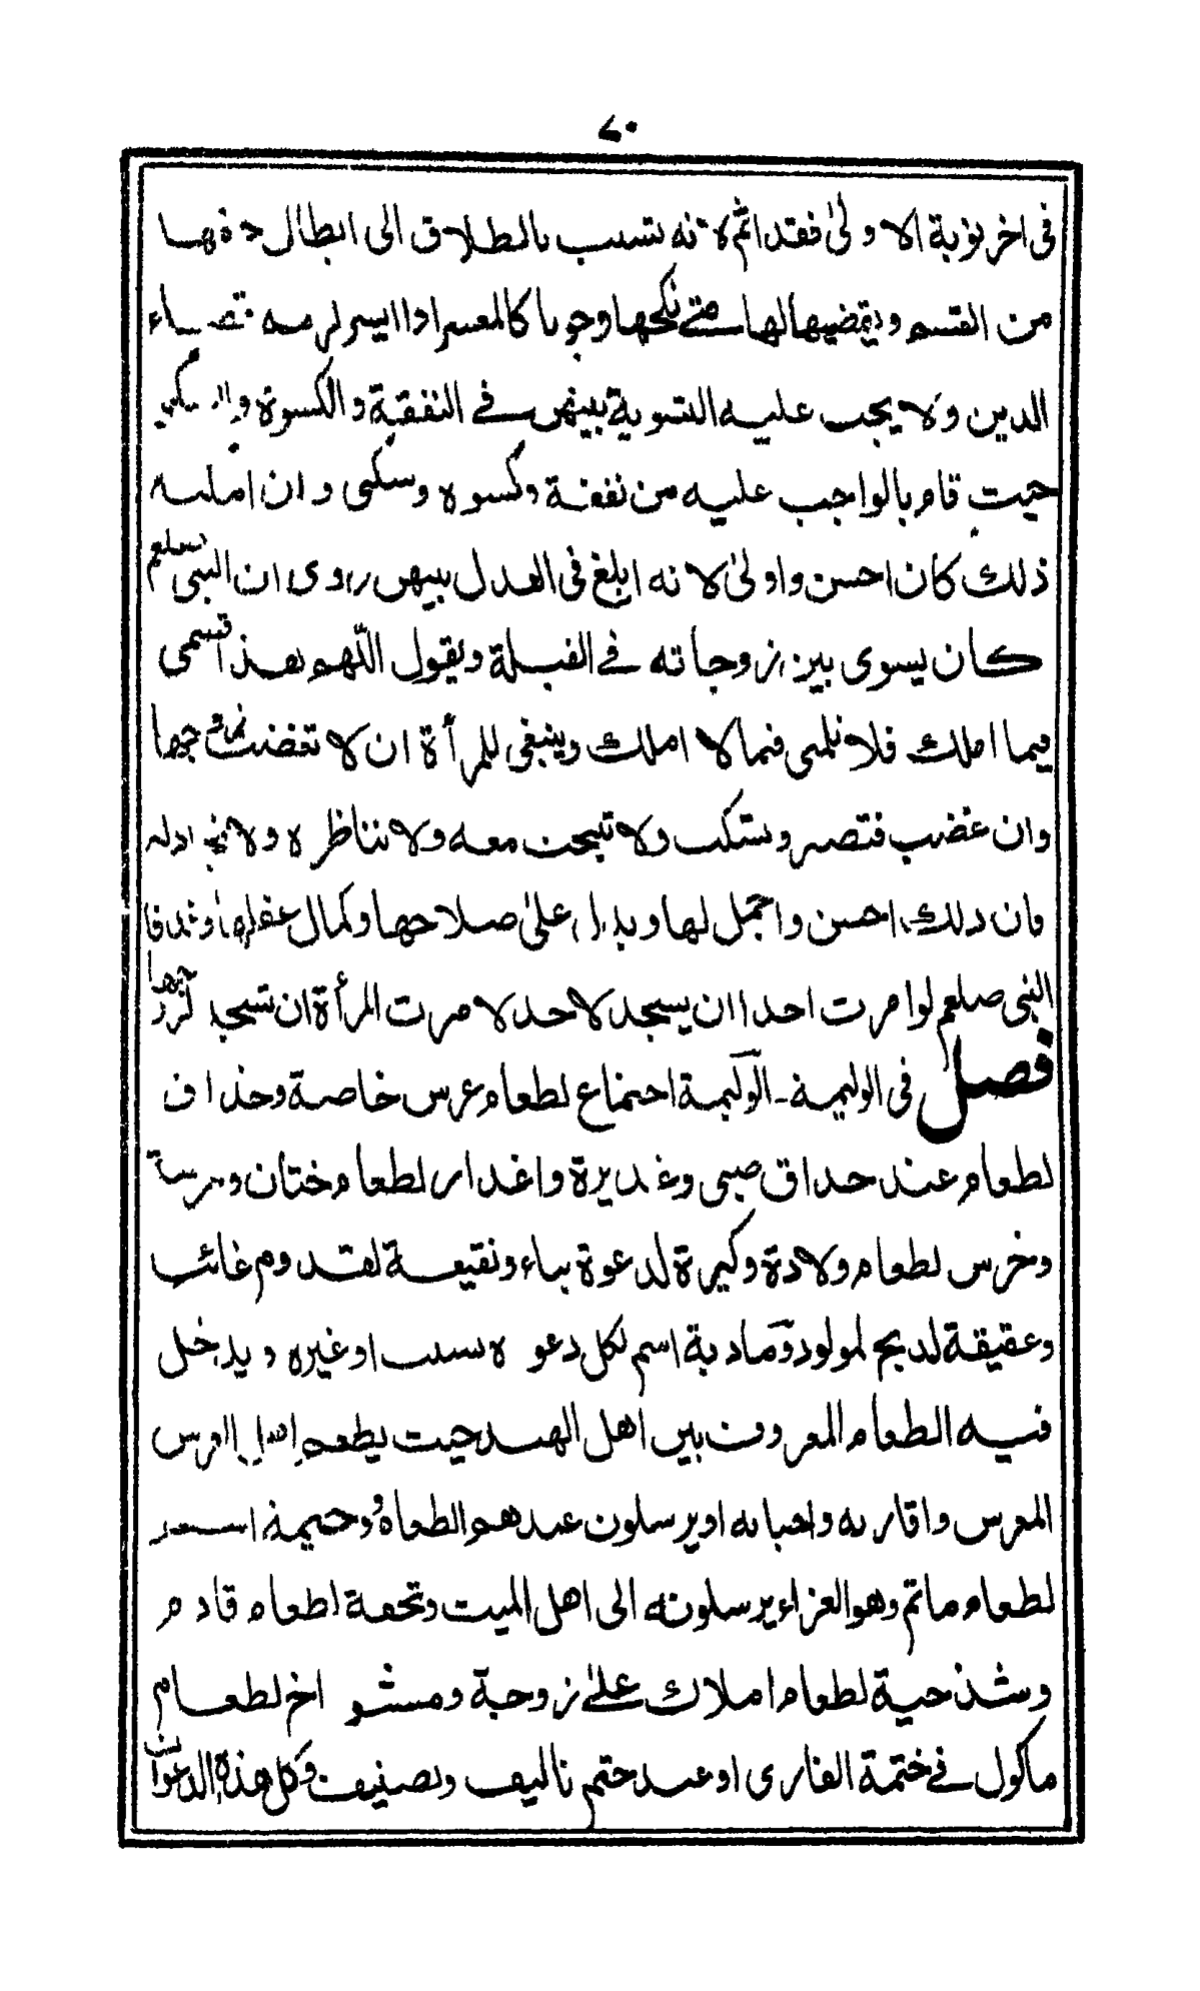 ٧٠
فى اخر نوبة الاولىٰ فقد اثم لانه تسبب بالطلاق الى ابطال حقها
من القسم ويقضيها لها متى نكحها وجوبا كالمعسر اذا ايسر لزمه قضاء
الدين ولا يجب عليه التسوية بينهن فے النفقة والكسوة والسكنى
حيث قام بالواجب عليه من نفقة وكسوه وسكنى وان امكنه
ذلك كان احسن واولىٰ لانه ابلغ فى العدل بينهن روى ان النبى صلعم
كان يسوى بين زوجاته فے القبلة ويقول اللّٰهم هذا قسمى
فيما املك فلا تلمنى فيما لا املك وينبغى للمرأة ان لا تغضب زوجها
وان غضب فتصبر وتسكت ولا تبحث معه ولا تناظره ولا تجادله
فان ذلك احسن واجمل لها ويدل علىٰ صلاحها وكمال عقلها وقد قال
النبى صلعم لو امرت احدا ان يسجد لاحد لامرت المرأة ان تسجد لزوجها
فصل فى الوليمة ـ الوليمة اجتماع لطعام عرس خاصة وحذاق
لطعام عند حذاق صبى وعذيرة واعذار لطعام ختان وخرسة
وخرس لطعام ولادة وكيرة لدعوة بناء ونقيعة لقدوم غائب
وعقيقة لذبح لمولود ومادبة اسم لكل دعوه بسبب او غيره ويدخل
فيه الطعام المعروف بين اهل الهند حيث يطعم اهل العرس
المعرس واقاربه واحبابه او يرسلون عندهم الطعام ووضيمة اسم
لطعام ماتم وهو العزاء يرسلونه الى اهل الميت وتحفة لطعام قادم
وشندخية لطعام املاك علىٰ زوجة ومشداخ لطعام
ماكول فے ختمة القارى او عند ختم تاليف وتصنيف وكل هذه الدعوات